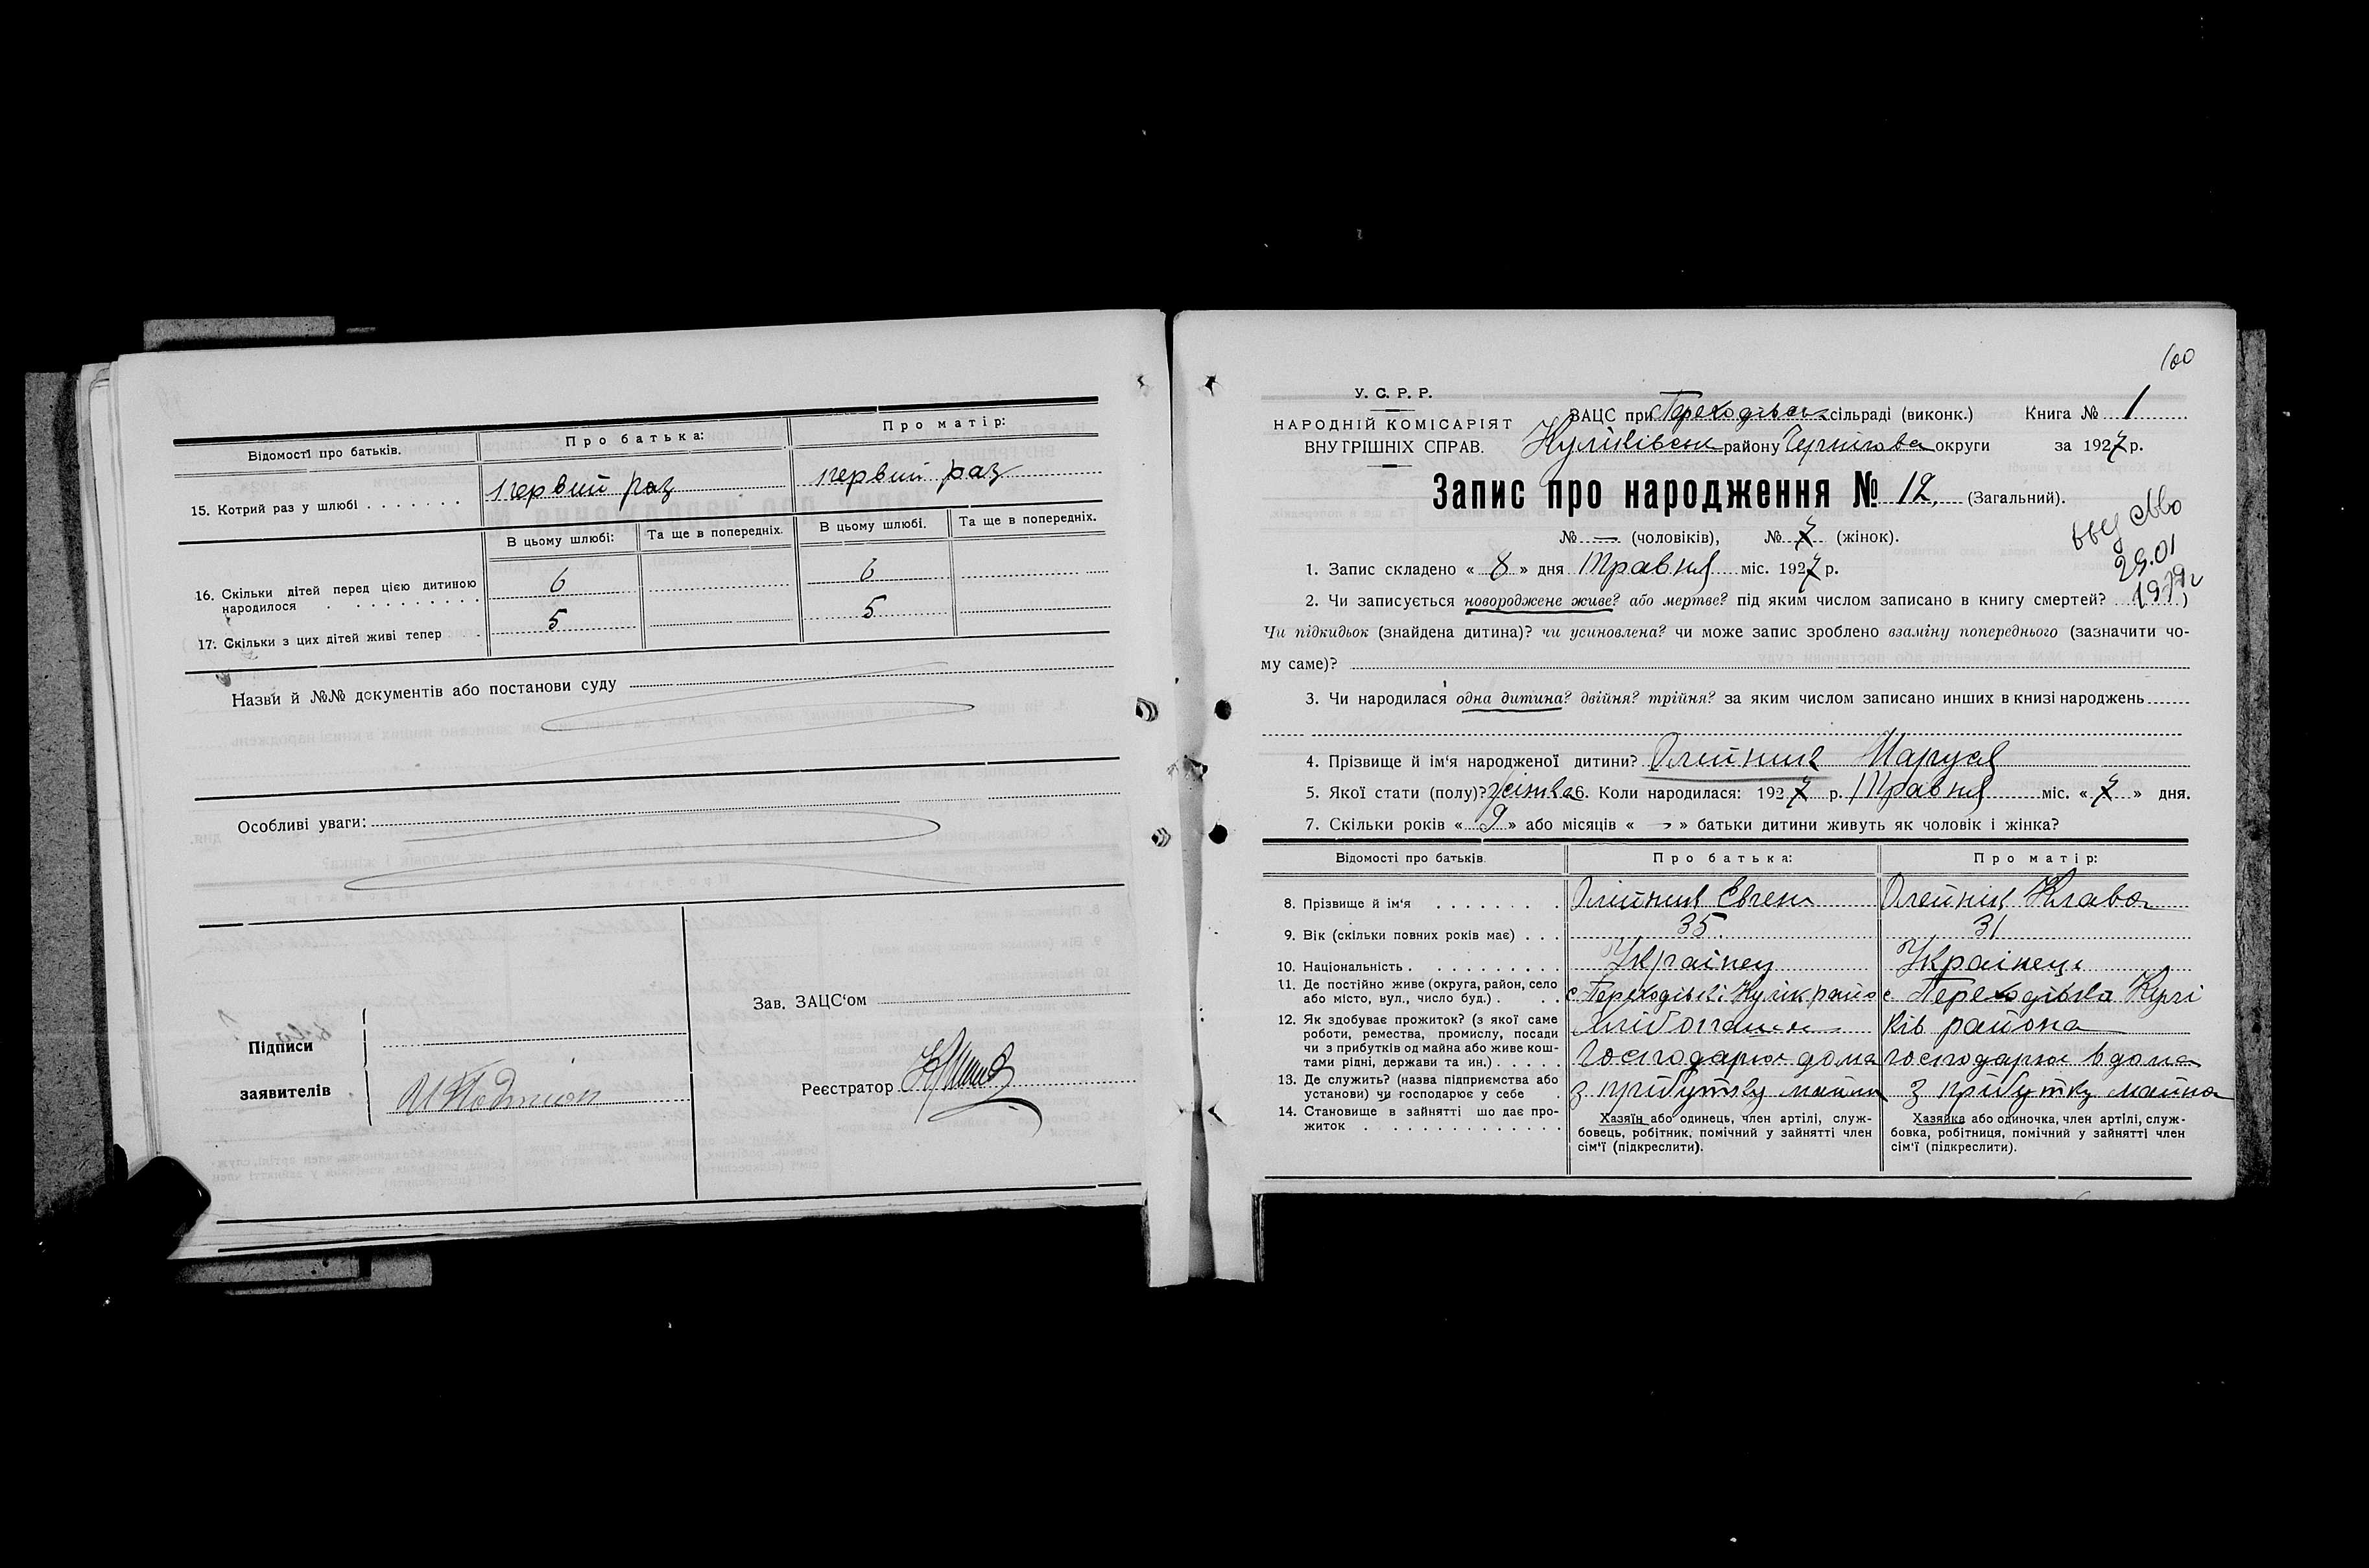 Відомості про батьків.
Про батька:
Про матір:
15. Котрий раз у шлюбі . . . . . . .
первий раз
первий раз
В цьому шлюбі:
Та ще в попередніх.
В цьому шлюбі.
Та ще в попередніх.
16. Скільки дітей перед цією дитиною
народилося . . . . . . . . . .
6
6
17. Скільки з цих дітей живі тепер .
5
5
Назви й №№ документів або постанови суду
Особливі уваги:
Підписи
заявителів
Зав. ЗАЦС'ом
Реєстратор
100
У. С. Р. Р.
НАРОДНІЙ КОМІСАРІЯТ
ВНУТРІШНІХ СПРАВ.
ЗАЦС при Переходівськ сільраді (виконк.) Книга № 1
Куликівськ району Чернігова округи за 1927 р.
Запис про народження № 12, (Загальний).
№ — (чоловіків), № 7 (жінок).
29.01
1979г
1. Запис складено « 8 » дня Травня міс. 1927 р.
2. Чи записується новороджене живе? або мертве? під яким числом записано в книгу смертей?
Чи підкидьок (знайдена дитина)? чи усиновлена? чи може запис зроблено взаміну попереднього (зазначити чо-
му саме)?
3. Чи народилася одна дитина? двійня? трійня? за яким числом записано инших в книзі народжень
4. Прізвище й ім'я народженої дитини? Олейник Маруся
5. Якої стати (полу)? жінка 6. Коли народилася: 1927 р. Травня міс. « 7 » дня.
7. Скільки років « 9 » або місяців « — » батьки дитини живуть як чоловік і жінка?
Відомості про батьків.
Про батька:
Про матір:
8. Прізвище й ім'я . . . . . . . .
Олійник Євген
Олейнік Клава
9. Вік (скільки повних років має) . . .
35
31
10. Національність . . . . . . . . . .
Українец
Українець
11. Де постійно живе (округа, район, село
або місто, вул., число буд.) . . .
с Переходівкі Кулік райо
с Переходівка Кулі
12. Як здобуває прожиток? (з якої саме
роботи, ремества, промислу, посади
чи з прибутків од майна або живе кош-
тами рідні, держави та ин.) . . . . .
ків района
Господарює дома
господарює в дома
13. Де служить? (назва підприємства або
установи) чи господарює у себе .
з прибутку майна
з прибутку майна
14. Становище в зайнятті що дає про-
житок . . . . . . . . . . . . .
Хазяїн або одинець, член артілі, служ-
бовець, робітник, помічний у зайнятті член
сім'ї (підкреслити).
Хазяйка або одиночка, член артілі, служ-
бовка, робітниця, помічний у зайнятті член
сім'ї (підкреслити).